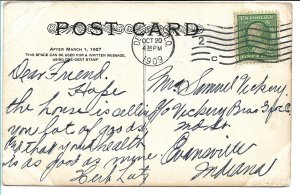 POST CARD
AFTER MARCH 1, 1907
THIS SPACE CAN BE USED FOR A WRITTEN MESSAGE,
USING ONE-CENT STAMP
OCT 20
4 30 PM
1909
2
C
Dear Friend.
Hope
the house is selling
you lot or goods
and that your health
is as good as mine
Herb Lutz
Mrs Samuel Vickery
c/o Vickery Bros 3rd &
Main
Evansville
Indiana